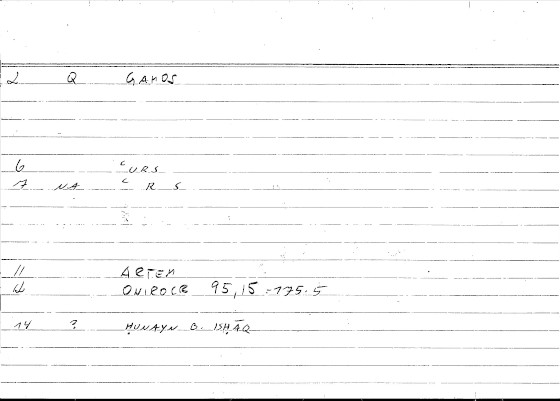 2 Q GAMOS
6 CURS
7 NA C R S
11 ARTEM
12 ONIROCR 95,15 = 175.5
14 ? ḤUNAYN B. ISḤĀQ